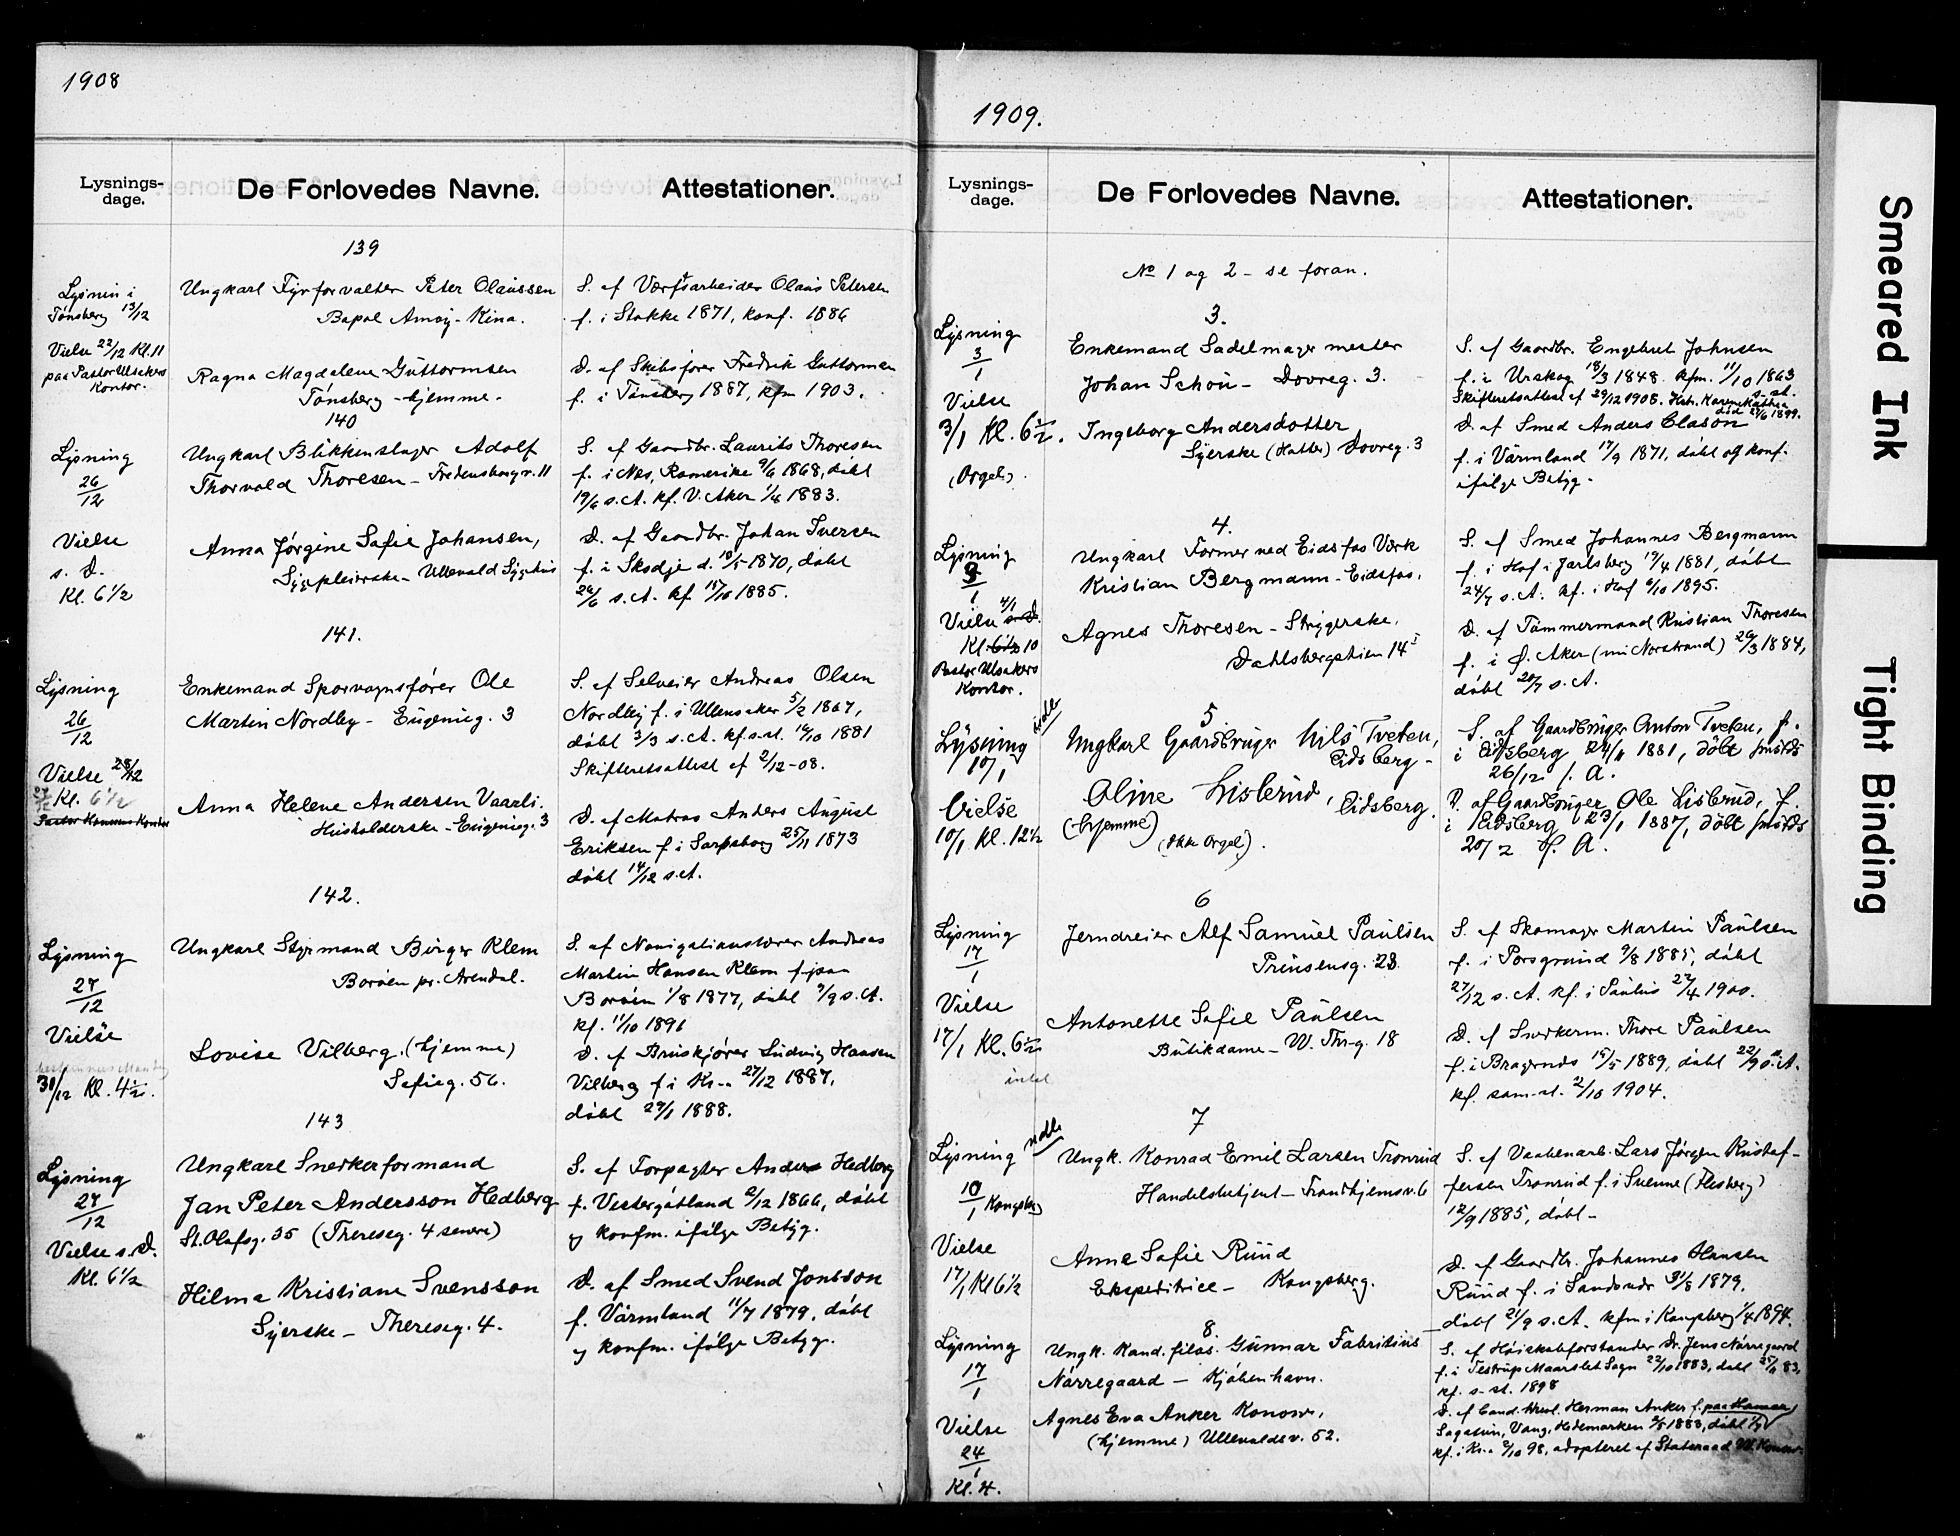 1908
Lysnings-dage.
De Forlovedes Navne.
Attestationer.
139
Lysnin i
Tønsberg 13/12
Vielse 22/12 Kl. 11
paa Pastor Ulsakers
Kontor.
Ungkarl Fyrforvalter Peter Olaussen
Amoy - Kina.
Ragna Magdalene Guttormsen
Tønsberg - hjemme -
S. af Værftsarbeider Olaus Petersen
f. i Stokke 1871, konf. 1886
D. af Skibsfører Fredrik Guttormsen
f. i Tønsberg 1887, kfm 1903.
140
Lysning
26/12
Vielse
s. D.
Kl. 6 1/2
Ungkarl Blikkenslager Adolf
Thorvald Thoresen - Fredensborgv. 11
Anna Jørgine Sofie Johansen,
Sygepleierske - Ullevald Sygehus
S. af Gaardbr. Laurits Thoresen
f. i Nes, Romerike 9/6 1868, døbt
19/6 s. A. kf. V. Aker 1883.
D. af Gaardbr. Johan Iversen
f. i Skodje d. 10/5 1870, døbt
26/6 s. A. kf 1885.
141.
Lysning
26/12
Vielse 28/12
Kl. 6 1/2
Enkemand Sporvognsfører Ole
Martin Nordby - Eugenieg. 3
Anna Helene Andersen Vaarli.
Husholderske - Eugenieg. 3
S. af Selveier Andreas Olsen
Nordby f. i Ullensaker 5/2 1867,
døbt 3/3 s. A. kf. s. st. 16/10 1881
Skifteretsattest af 2/12 - 08.
D. af Matros Anders August
Eriksen f. i Sarpsborg 25/11 1873
døbt 14/12 s. A.
142.
Lysning
27/12
Vielse
31/12 Kl. 4 1/2.
Ungkarl Styrmand Birger Klem
Borøen pr. Arendal.
Lovise Vilberg. (hjemme)
Sofieg. 56.
S. af Navigationslærer Andreas
Martin Hansen Klem f. paa
Borøen 1/8 1877, døbt 9/9 s. A.
kf. 11/10 1891
D. af Bruskjører Ludvig Hansen
Vilberg f. i Kr.a 27/12 1887,
døbt 29/1 1888.
143
Lysning
27/12
Vielse s. D.
Kl. 6 1/2
Ungkarl Snekkerformand
Jan Peter Andersson Hedberg
St. Olafsg. 35 (Thereseg. 4 senere)
Hilma Kristiane Svensson
Syerske - Thereseg. 4.
S. af Forpagter Anders Hedberg
f. Vestergøtland 2/12 1866, døbt
og konfm. ifølge Betyg.
D. af Smed Svend Jonsson
f. Värmland 11/7 1879, døbt
og konfm. ifølge Betyg.
1909.
Lysnings-dage.
De Forlovedes Navne.
Attestationer.
No 1 og 2 - se foran.
3.
Lysning
3/1
Vielse
3/1 Kl. 6 1/2.
(Orgel).
Enkemand Sadelmagermester
Johan Schou - Dovreg. 3.
Ingeborg Andersdotter
Syerske (Hatter) Dovreg. 3
S. af Gaardbr. Engebret Johnsen
f. i Urskog 18/3 1848. kfm. 11/10 1863 s. st.
Skifteretsattest af 29/12 1908. Hstr. Karen Kathra
død 27/6 1899.
D. af Smed Anders Clason
f. i Värmland 17/9 1871, døbt og konf.
ifølge Betyg.
4.
Lysning
3/1
Vielse 4/1 s. D.
Kl. 6 1/2 10
Pastor Ulsakers
Kontor.
Ungkarl Former ved Eidsfos Værk
Kristian Bergmann - Eidsfos.
Agnes Thoresen - Strygerske.
Dahlsbergstien 14 I
S. af Smed Johannes Bergmann
f. i Hof i Jarlsberg 17/4 1881, døbt
24/7 s. A. kf. i Hof 6/10 1895.
D. af Tømmermand Kristian Thoresen
f. i Ø. Aker (nu Norstrand) 20/3 1884,
døbt 20/7 s. A.
5
Lysning
10/1
Vielse
10/1 Kl. 12 1/2
Ungkarl Gaardbruger Nils Tveten,
Eidsberg -
Oline Lislerud, Eidsberg.
(hjemme)
(ikke Orgel).
S. af Gaardbruger Anton Tveten, f.
i Eidsberg 24/11 1881, døbt smsteds
26/12 s. A.
D. af Gaardbruger Ole Lislerud, f.
i Eidsberg 23/1 1887, døbt smsteds
20/2 s. A.
6
Lysning
17/1
Vielse
17/1 Kl. 6 1/2
Jerndreier Alf Samuel Paulsen
Prinsensg. 23
Antonette Sofie Paulsen
Butikdame - W. Thr-g. 18
S. af Skomager Martin Paulsen
f. i Porsgrund 9/8 1885, døbt
27/12 s. A. kf. i Paulus 22/4 1900.
D. af Snekkerm. Thore Paulsen
f. i Bragernes 15/5 1889, døbt 22/9 s. A.
kf. sam. st. 2/10 1904.
7
Lysning
10/1 Kongsberg
Vielse
17/1 Kl 6 1/2
Ungk. Konrad Emil Larsen Tronrud
Handelsbetjent - Trondhjemsv. 6
Anne Sofie Ruud
Ekspeditrice - Kongsberg.
S. af Vaabenarb. Lars Jørgen Kristof-
fersen Tronrud f. i Svenne (Flesberg)
12/9 1885, døbt -
D. af Gaardbr. Johannes Hansen
Ruud f. i Sandsvær 31/8 1879,
døbt 21/9 s. A. kfm i Kongsberg 1/4 1894.
8.
Lysning
17/1
Vielse
24/1
Kl. 4.
Ungk. Kand. filos. Gunnar Fabritius
Nørregaard - Kjøbenhavn.
Agnes Eva Anker Konow,
(hjemme) Ullevaldsv. 52.
S. af Høiskoleforstander Dr. Jens Nørregaard
f. i Testrup Maarslet Sogn 22/10 1883, døbt 25/11 83,
kf. s. st. 1898
D. af Cand. theol. Herman Anker f. paa Hamar
Sagatun, Vang, Hedemarken 1888, døbt
kf. i Kr.a 2/10 98, adopteret af Statsraad W. Konow.
Smeared Ink
Tight Binding